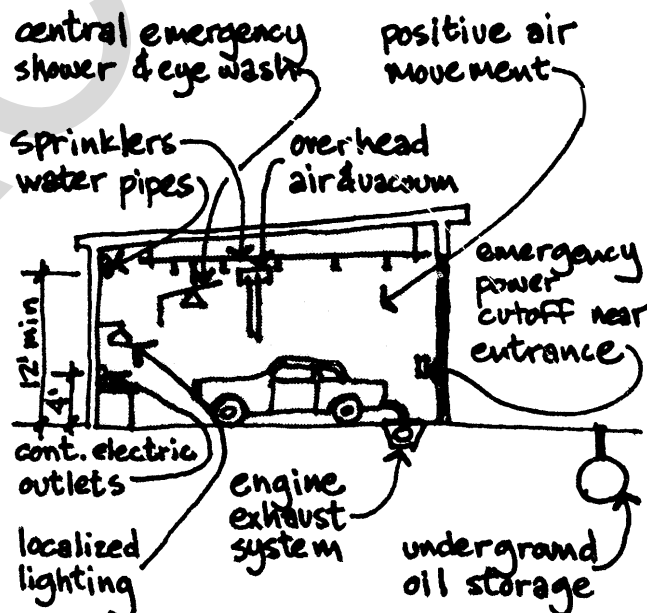 central emergency
shower & eye wash
positive air
movement
sprinklers
water pipes
overhead
air & vacuum
emergency
power
cutoff near
entrance
12' min
4'
cont. electric
outlets
engine
exhaust
system
localized
lighting
underground
oil storage